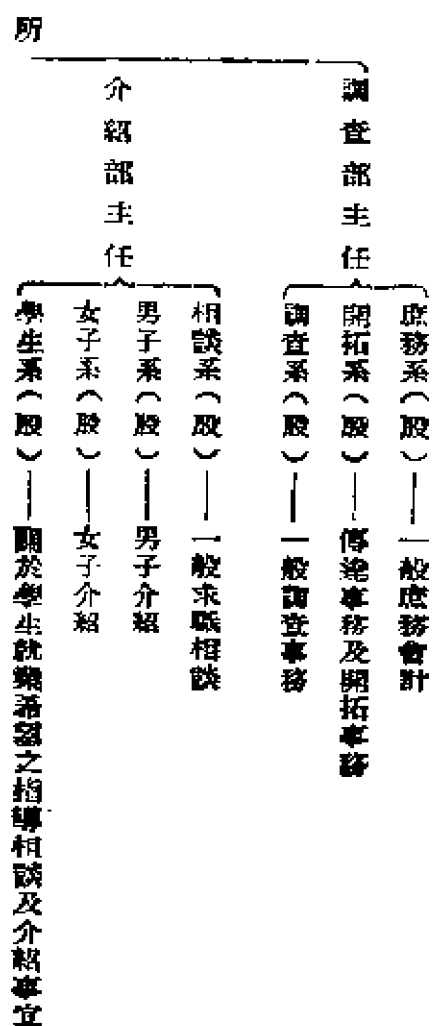 調查部主任
庶務系（股）——一般庶務會計
開拓系（股）——傳達事務及開拓事務
調查系（股）——一般調查事務
介紹部主任
相談系（股）——一般求職相談
男子系（股）——男子介紹
女子系（股）——女子介紹
學生系（股）——關於學生就職希望之指導相談及介紹事宜
所